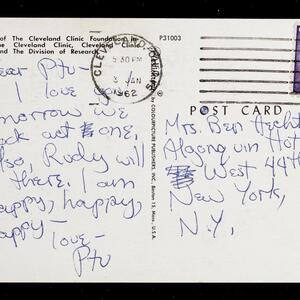 of The Cleveland Clinic Foundation in
the Cleveland Clinic, Cleveland Clinic
and The Division of Research.
P31003
CLEV
5 30 PM
3 JAN
1962
by COLOURPICTURE PUBLISHERS, INC., Boston 15, Mass., U.S.A.
Dear Ptu-
I love you.
Tomorrow we
act one,
also, Rudy will
there. I am
happy, happy,
happy-
love-
Ptu
POST CARD
Mrs. Ben Hecht
Algonquin Hot
West 44th
New York,
N.Y.